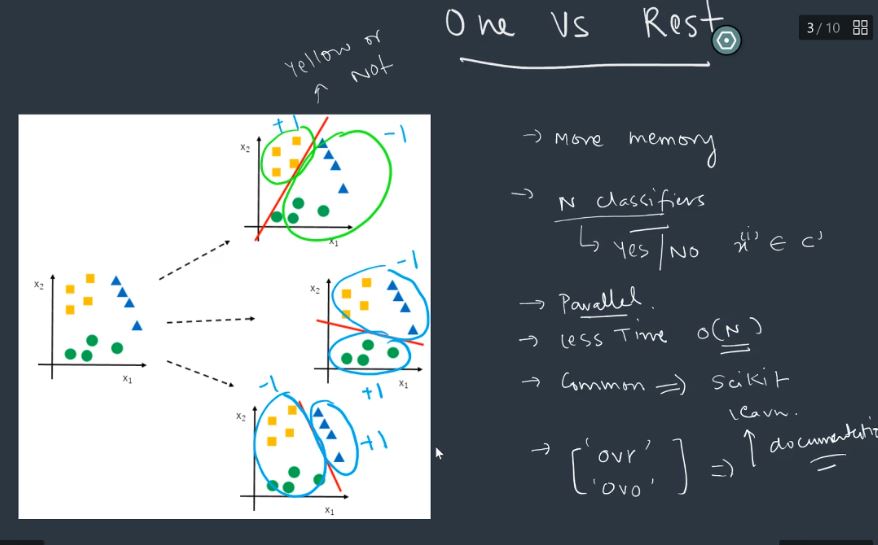 One Vs Rest
3 / 10
Yellow or
Not
+1
-1
x2
x1
-1
x2
x1
+1
x2
x1
-1
x2
+1
x1
→ More memory
→ N classifiers
↳ Yes/No x⁽ⁱ⁾ ∈ c'
→ Parallel.
→ less Time O(N)
→ Common ⇒ scikit
learn.
→ ['ovr' ⇒ ↑ documentati
'ovo']